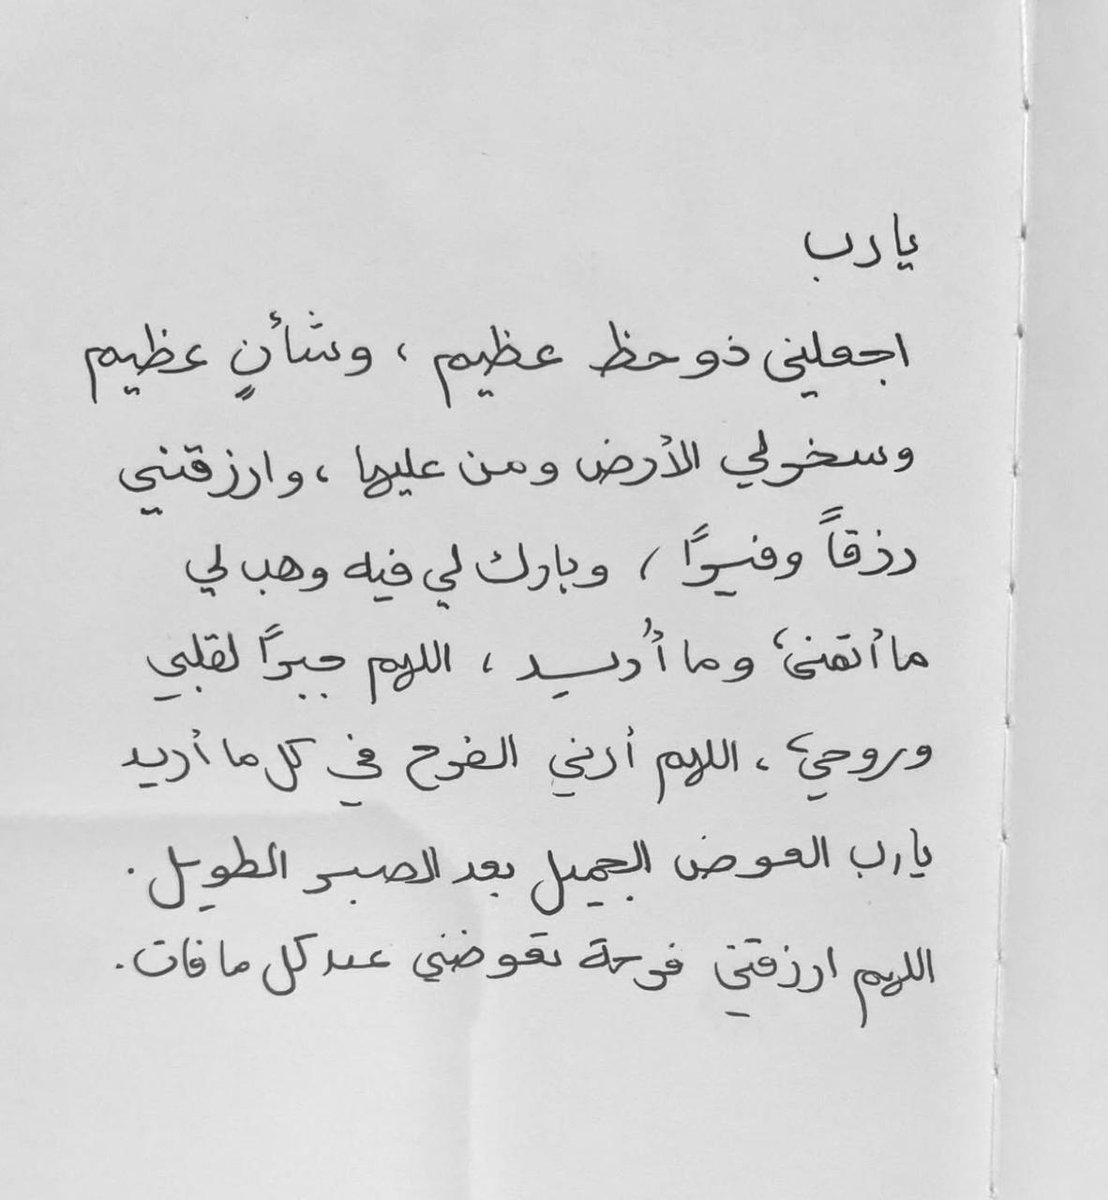 يارب
اجعلني ذو حظ عظيم ، وشأنٍ عظيم
وسخرلي الأرض ومن عليها ، وارزقني
رزقاً وفيرًا ، وبارك لي فيه وهب لي
ما أتمنى وما أُريد ، اللهم جبرًا لقلبي
وروحي ، اللهم أرني الفرح في كل ما أريد
يارب العوض الجميل بعد الصبر الطويل .
اللهم ارزقني فرحة تعوضني عن كل ما فات .